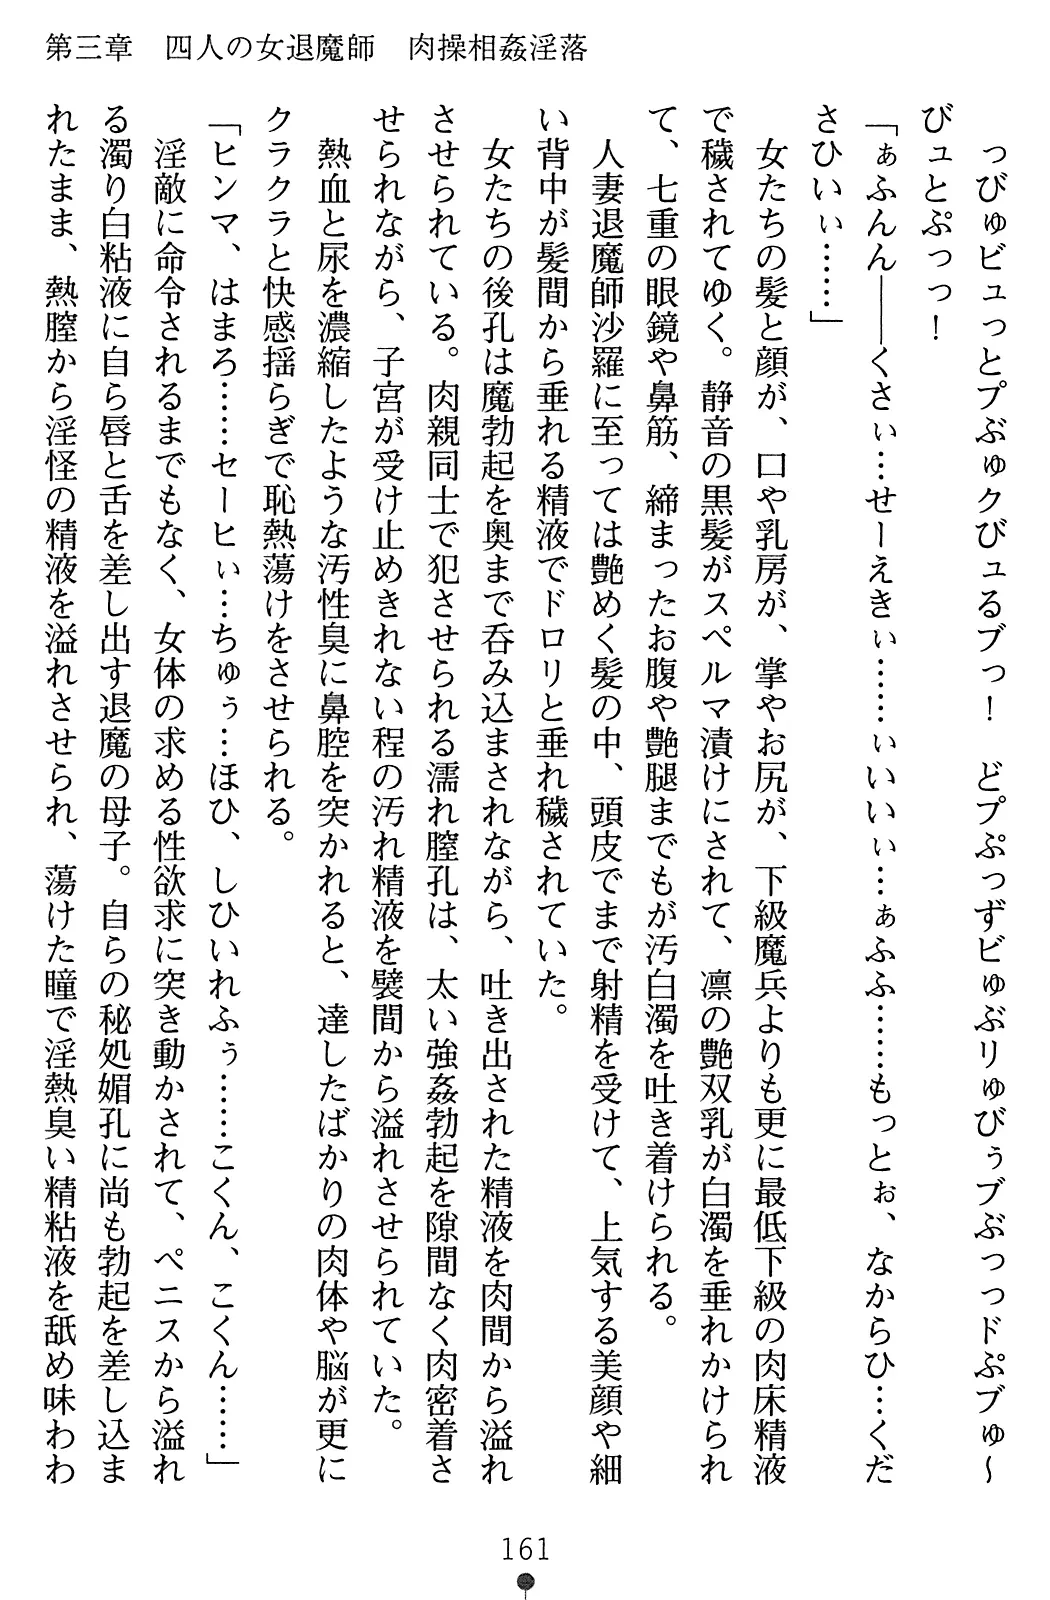 第三章　四人の女退魔師　肉操相姦淫落
っびゅビュっとプぶゅクびュるブっ！　どプぷっずビゅぶリゅびぅブぶっっドぷブゅ～
びュとぷっっ！
「ぁふんん――くさぃ…せーえきぃ……ぃいいぃ…ぁふふ……もっとぉ、なからひ…くだ
さひいぃ……」
女たちの髪と顔が、口や乳房が、掌やお尻が、下級魔兵よりも更に最低下級の肉床精液
で穢されてゆく。静音の黒髪がスペルマ漬けにされて、凛の艶双乳が白濁を垂れかけられ
て、七重の眼鏡や鼻筋、締まったお腹や艶腿までもが汚白濁を吐き着けられる。
人妻退魔師沙羅に至っては艶めく髪の中、頭皮でまで射精を受けて、上気する美顔や細
い背中が髪間から垂れる精液でドロリと垂れ穢されていた。
女たちの後孔は魔勃起を奥まで呑み込まされながら、吐き出された精液を肉間から溢れ
させられている。肉親同士で犯させられる濡れ膣孔は、太い強姦勃起を隙間なく肉密着さ
せられながら、子宮が受け止めきれない程の汚れ精液を襞間から溢れさせられていた。
熱血と尿を濃縮したような汚性臭に鼻腔を突かれると、達したばかりの肉体や脳が更に
クラクラと快感揺らぎで恥熱蕩けをさせられる。
「ヒンマ、はまろ……セーヒぃ…ちゅぅ…ほひ、しひいれふぅ……こくん、こくん……」
淫敵に命令されるまでもなく、女体の求める性欲求に突き動かされて、ペニスから溢れ
る濁り白粘液に自ら唇と舌を差し出す退魔の母子。自らの秘処媚孔に尚も勃起を差し込ま
れたまま、熱膣から淫怪の精液を溢れさせられ、蕩けた瞳で淫熱臭い精粘液を舐め味わわ
161